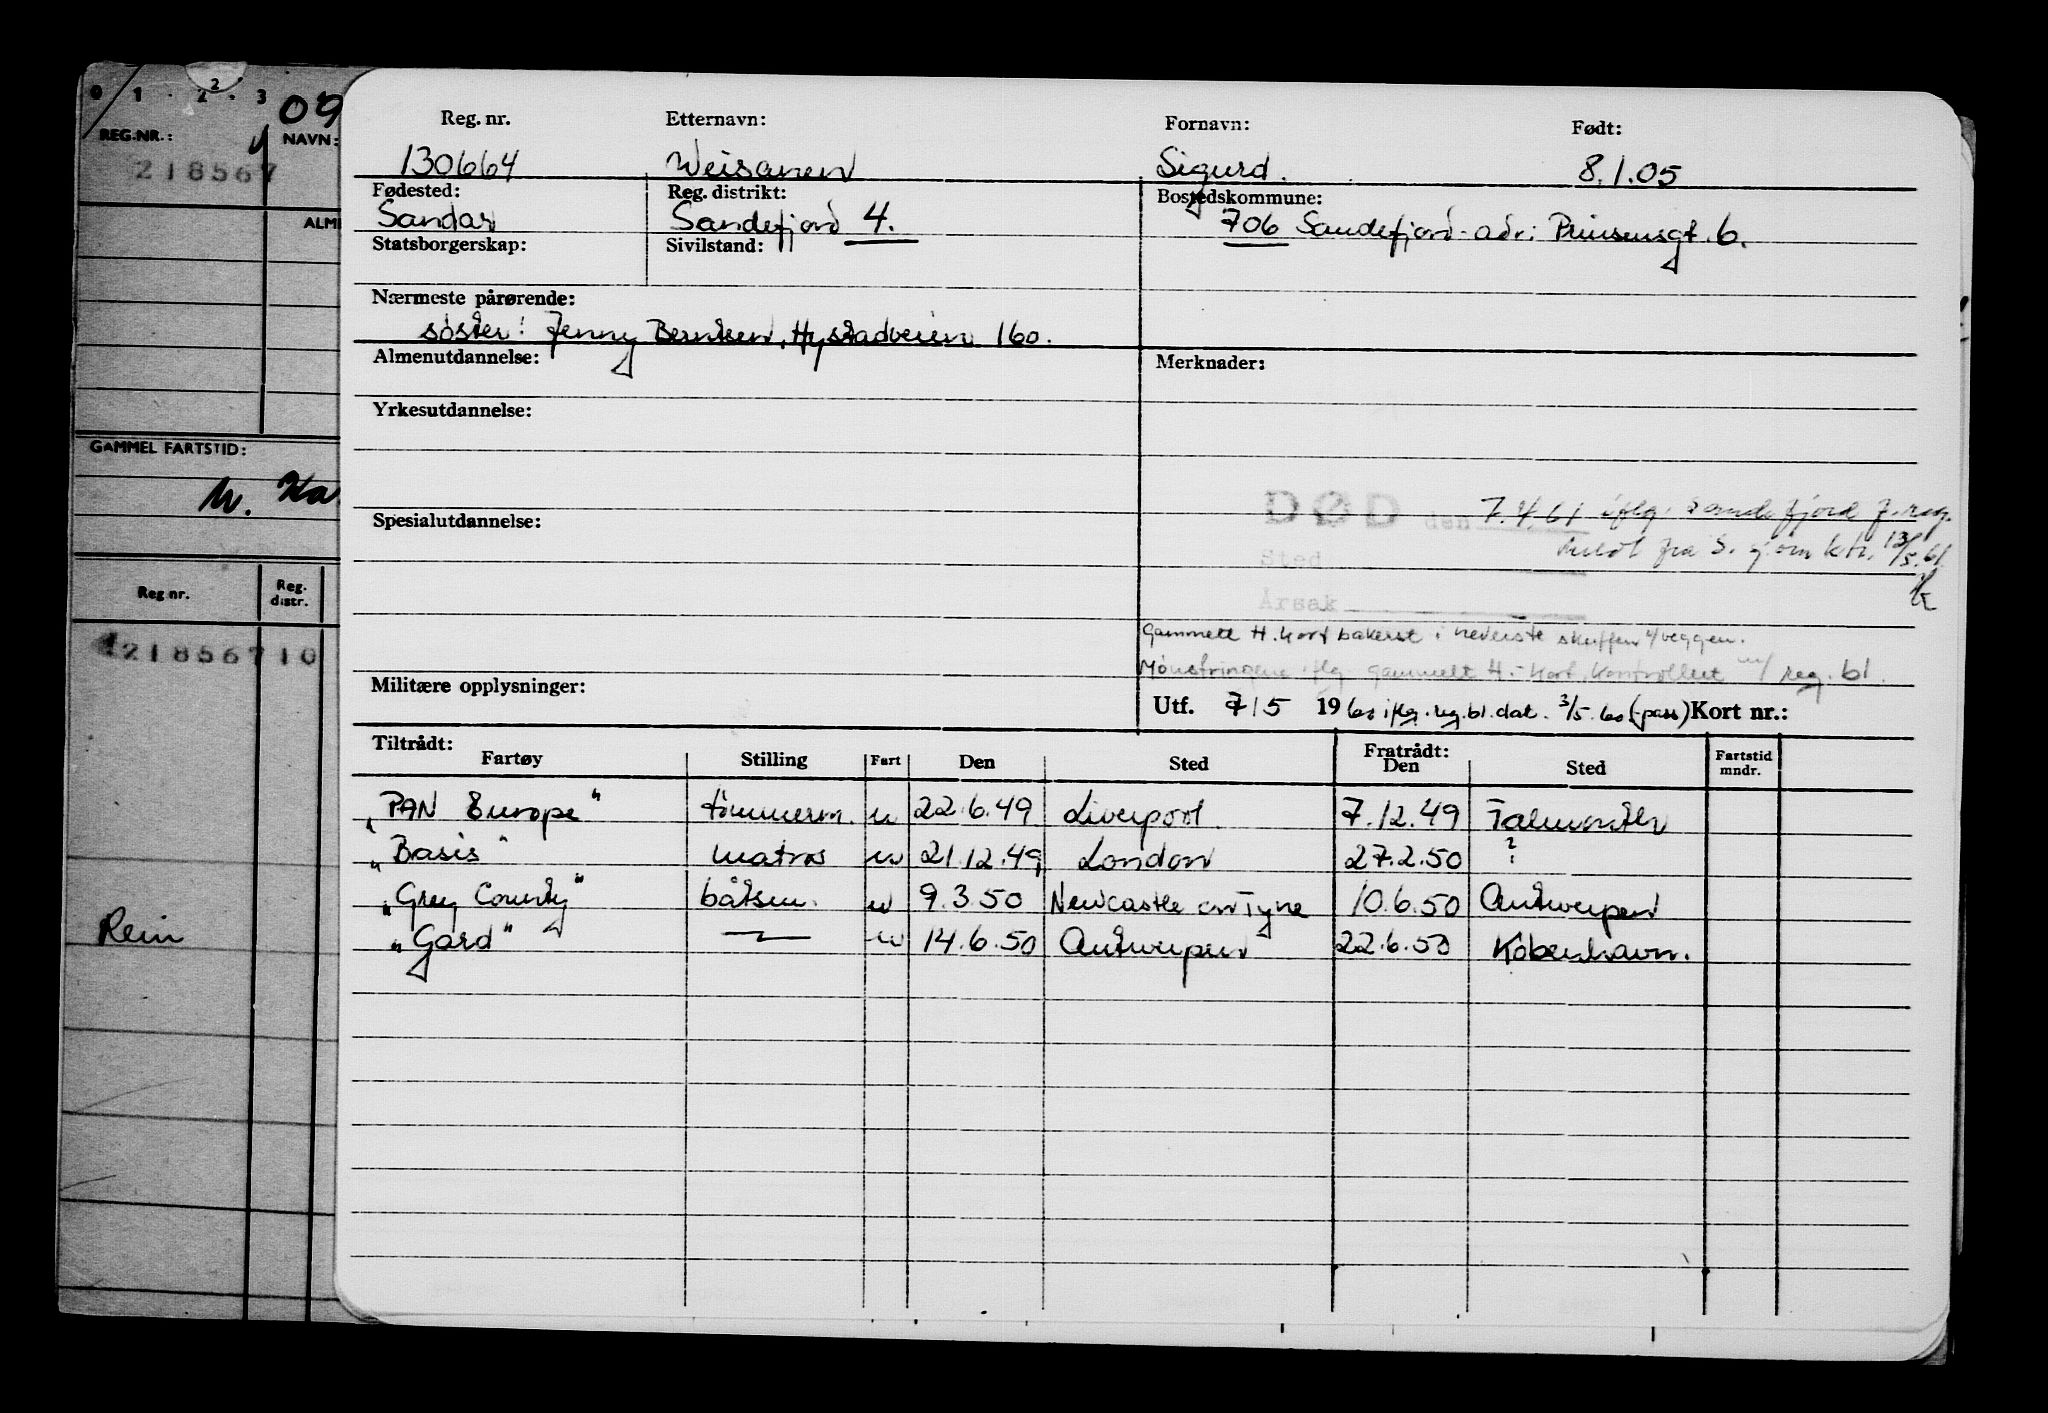 0 1 2 3 09
2
REG.NR.: NAVN:
218567
GAMMEL FARTSTID:
Reg nr. Reg. distr.
218567 10
Rein
Reg. nr. Etternavn: Fornavn: Født:
130664 Weisanen Sigurd. 8.1.05
Fødested: Reg. distrikt: Bostedskommune:
Sandar Sandefjord 4. 706 Sandefjord - adr: Prinsensgt. 6.
Statsborgerskap: Sivilstand:
Nærmeste pårørende:
søster: Jenny Berntsen, Hystadveien 160.
Almenutdannelse: Merknader:
Yrkesutdannelse:
DØD den 7.4.61 iflg. Sandefjord f.reg.
Spesialutdannelse:
Sted meldt fra S. sj.øm ktr. 13/5.61
Årsak
Gammelt H.kort bakerst i nederste skuffen v/veggen.
Mønstringene iflg. gammelt H.-kort. kontrollert m/ reg. bl.
Militære opplysninger:
Utf. 7/5 1960 iflg. reg.bl. dat. 3/5.60 (-pass) Kort nr.:
Tiltrådt: Fratrådt:
Fartøy Stilling Fart Den Sted Den Sted Fartstid mndr.
"PAN Europe" tømmerm. u 22.6.49 Liverpool. 7.12.49 Falmouth
"Basis" matros u 21.12.49 London 27.2.50 ?
"Grey County" båtsm. u 9.3.50 Newcastle on Tyne 10.6.50 Antwerpen
"Gard" — u 14.6.50 Antwerpen 22.6.50 København.